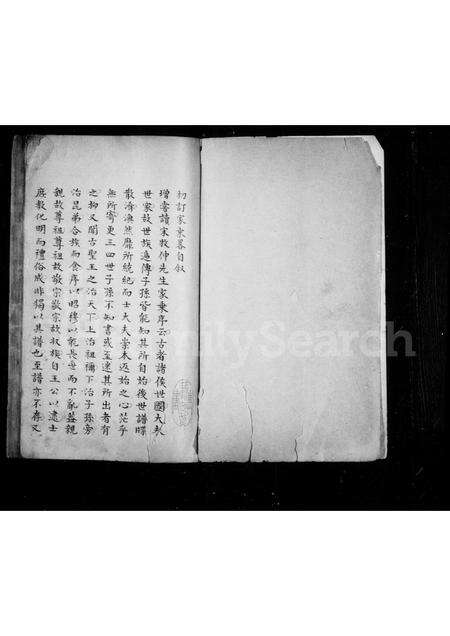 初訂家東畧自叙
增嘗讀宋敉仲先生家乗序云古者諸侯世國大夫
世家故世族遞傳子孫皆能知其所自始後世譜牒
散漶然靡所統紀而士大夫崇本返始之心茫乎
無所寄更三四世子孫不知書或至迷其所出者有
之抑又聞古聖王之治天下上治祖禰下治子孫旁
治昆弟合族而食序以昭穆以能長世而不亂蓋親
親故尊祖尊祖故敬宗敬宗故収族自王公以逮士
庶教化明而禮俗成非獨以其譜也至譜亦不存又
Search